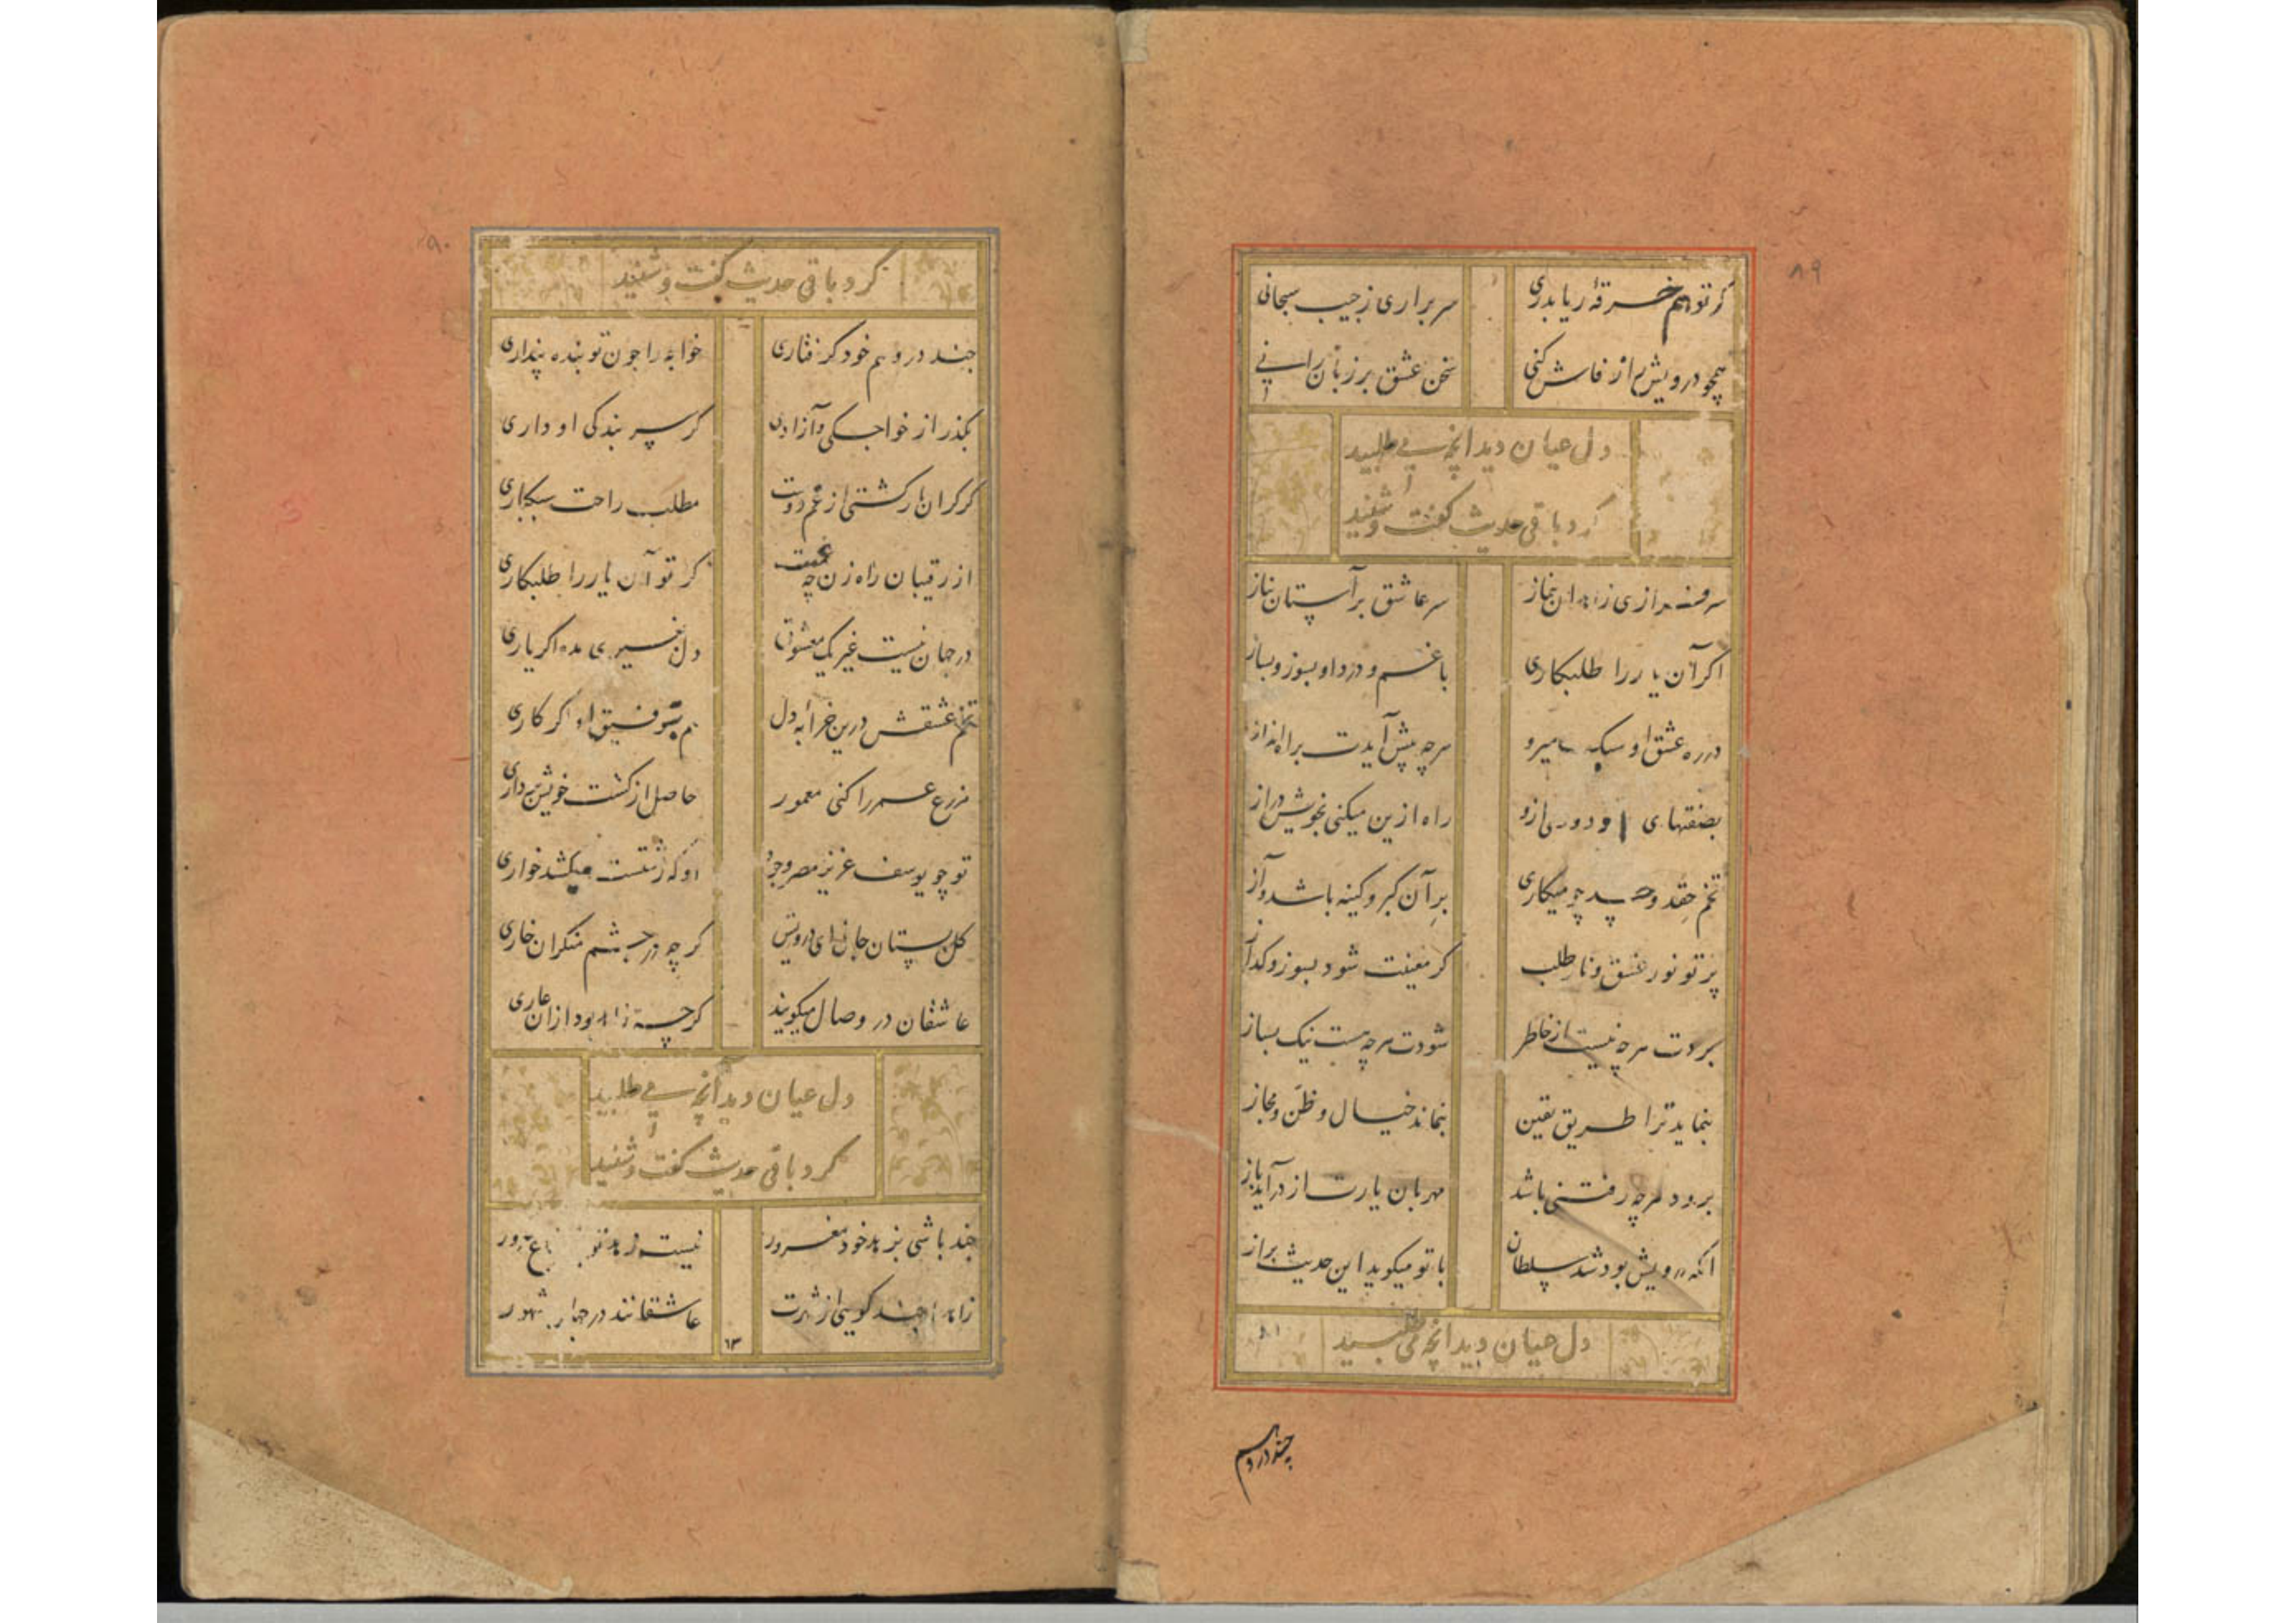 ۸۹
گر تو هم خرقهٔ ریا بدری سر براری ز جیب سبحانی
همچو درویش راز فاش کنی سخن عشق بر زبان رانی
دل عیان دید انچه می طلبید
کرد باقی حدیث گفت و شنید
سرفرازی زاهدان نماز سر عاشق بر آستان نیاز
اگر آن یار را طلبکاری با غم و درد او بسوز و بساز
در ره عشق او سبک میرو هرچه پیش آیدت براه انداز
بصفتهای او دوری ازو راه ازین میکنی بخویش دراز
تخم حقد و حسد چو میکاری بر آن کبر و کینه باشد و آز
پرتو نور عشق و نار طلب گر معینت شود بسوز و گداز
بردت هرچه نیست از خاطر شودت هرچه هست نیک بساز
بنماید ترا طریق یقین بنماند خیال و ظن و مجاز
برود هرچه رفتنی باشد مهربان یارت از در آید باز
آنکه درویش بود شد سلطان با تو میگوید این حدیث براز
دل عیان دید انچه می طلبید
چند در وهم
۹۰
کرد باقی حدیث گفت و شنید
چند در وهم خود گرفتاری خواجه را چون تو بنده پنداری
بگذر از خواجگی و آزادی گر سر بندگی او داری
گر گران بار گشتی از غم دوست مطلب راحت سبکباری
از رقیبان راه زن چه غمست گر تو آن یار را طلبکاری
در جهان نیست غیر یک معشوق دل بغیری مده اگر یاری
تخم عشقش درین خرابهٔ دل هم بتوفیق او اگر کاری
مزرع عمر را کنی معمور حاصل از کشت خویش برداری
تو چو یوسف عزیز مصر وجود او که زشتست میکشد خواری
گل بستان جان ای درویش گر چه در چشم منکران خاری
عاشقان در وصال میگویند گرچه زاهد بود ازان عاری
دل عیان دید آنچه می طلبید
کرد باقی حدیث گفت و شنید
چند باشی بزهد خود مغرور نیست زهد تو
زاهدا چند گویی از شهرت عاشقانند در جهان مشهور
۱۳